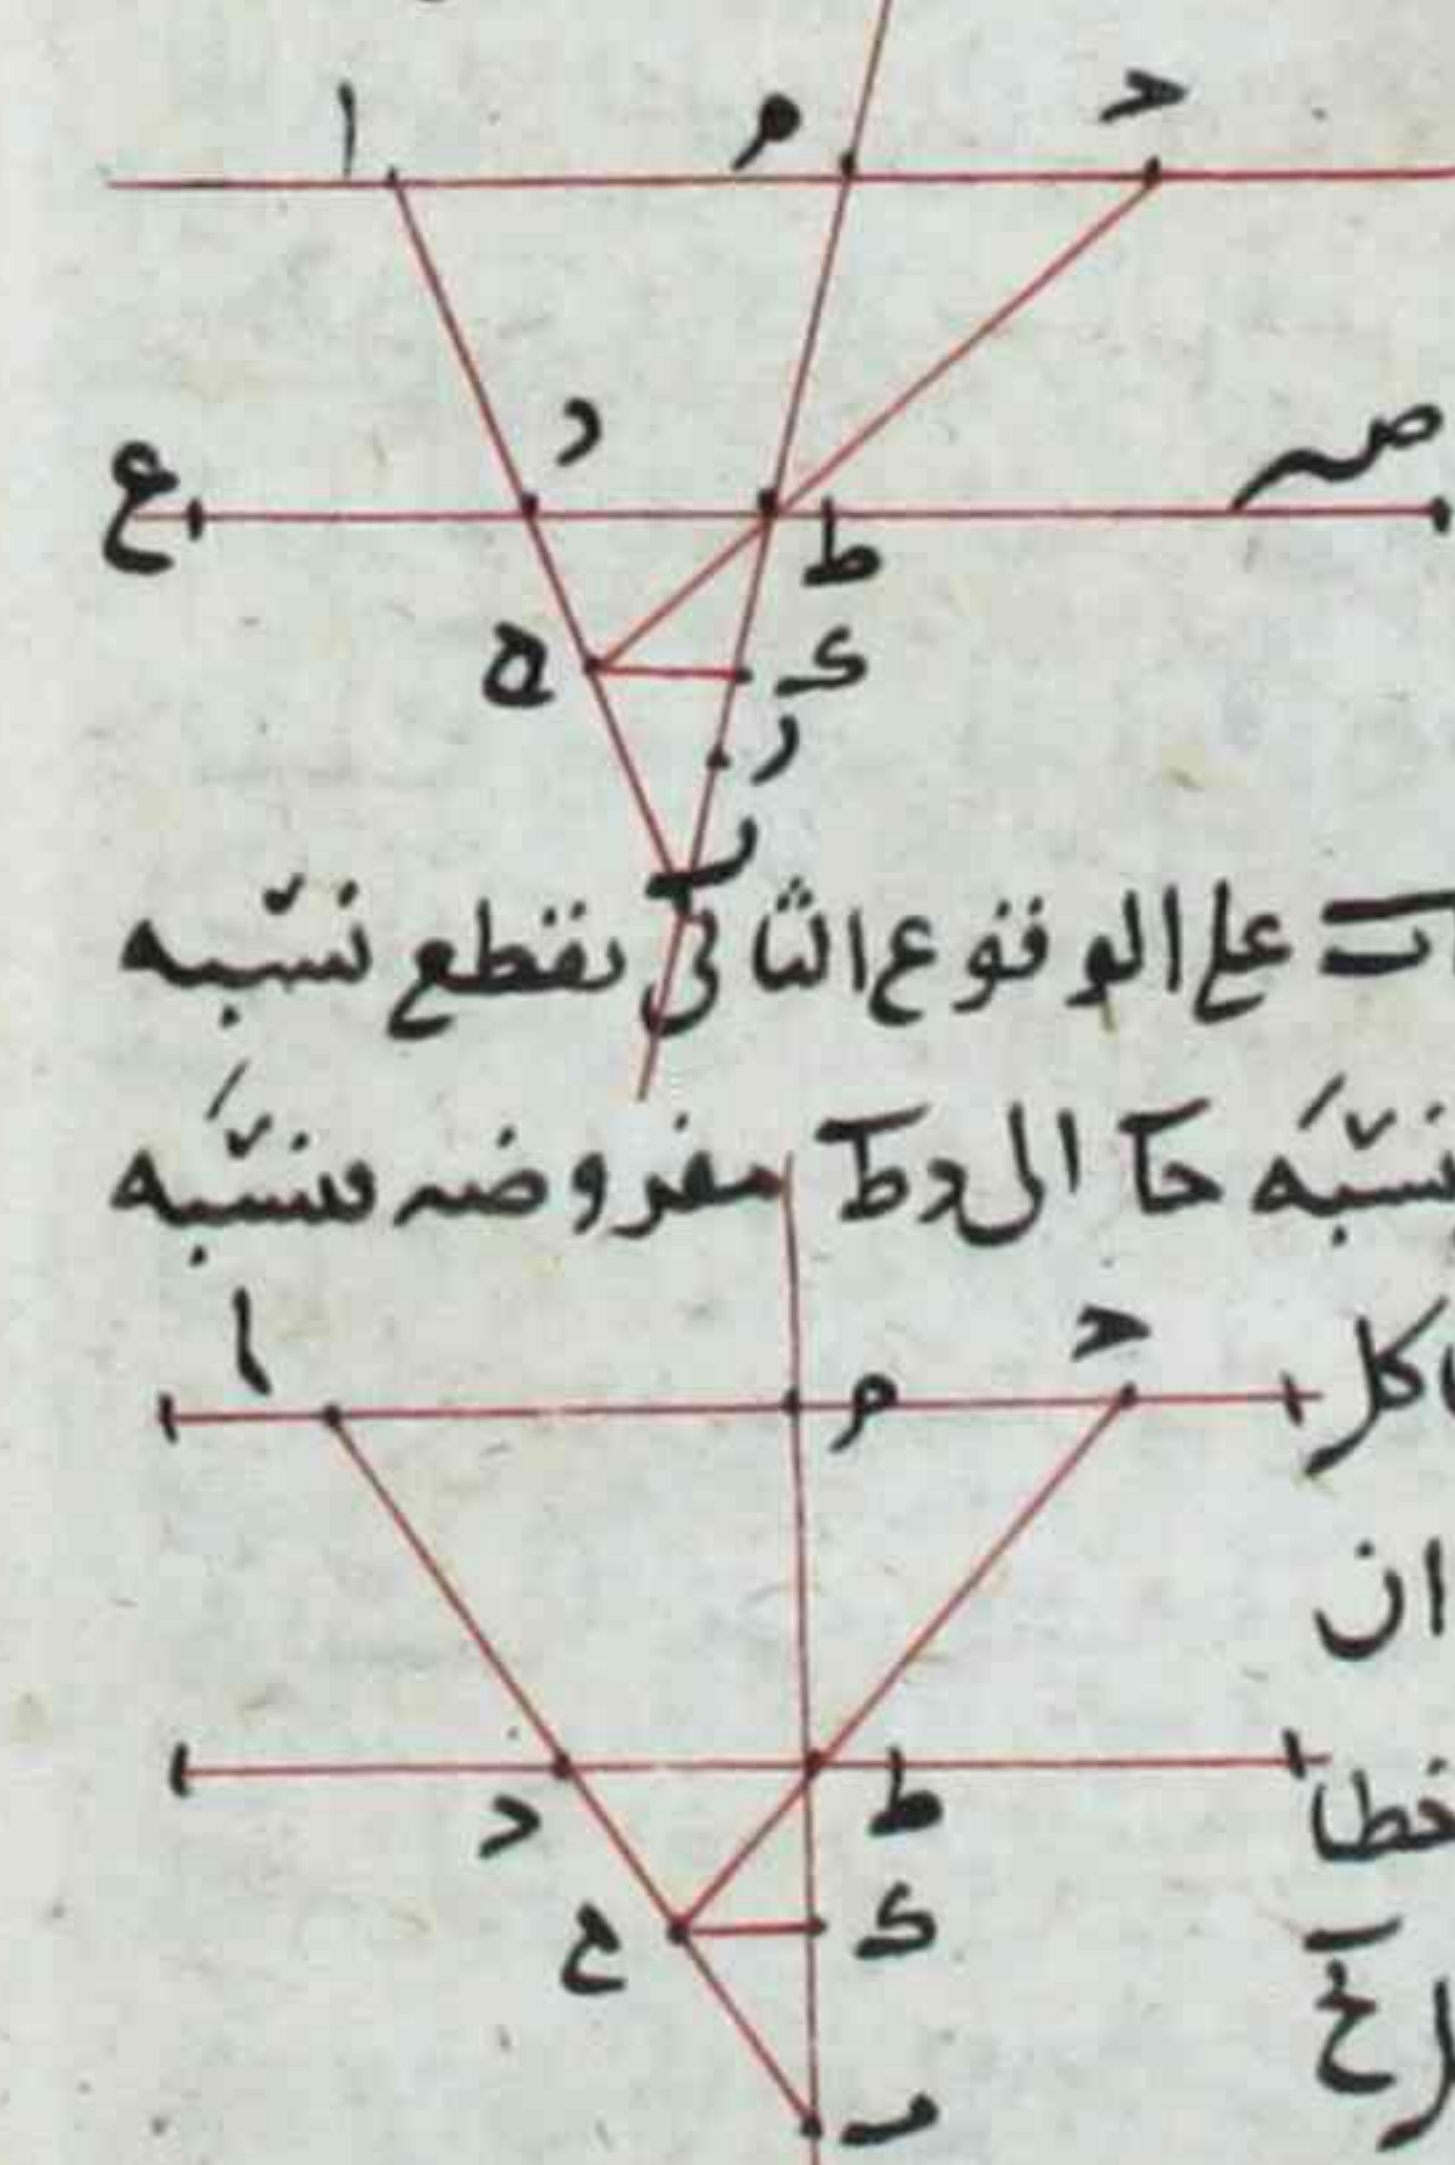 ا م ح
ع د ط صه
ه ك
ر
ب
على الوقوع الثاني نقطع نسبة
نسبة حا الى دط مفروضه فنسبة
ا م ح
كل
ان
د ط
خطا
ح ك
ب